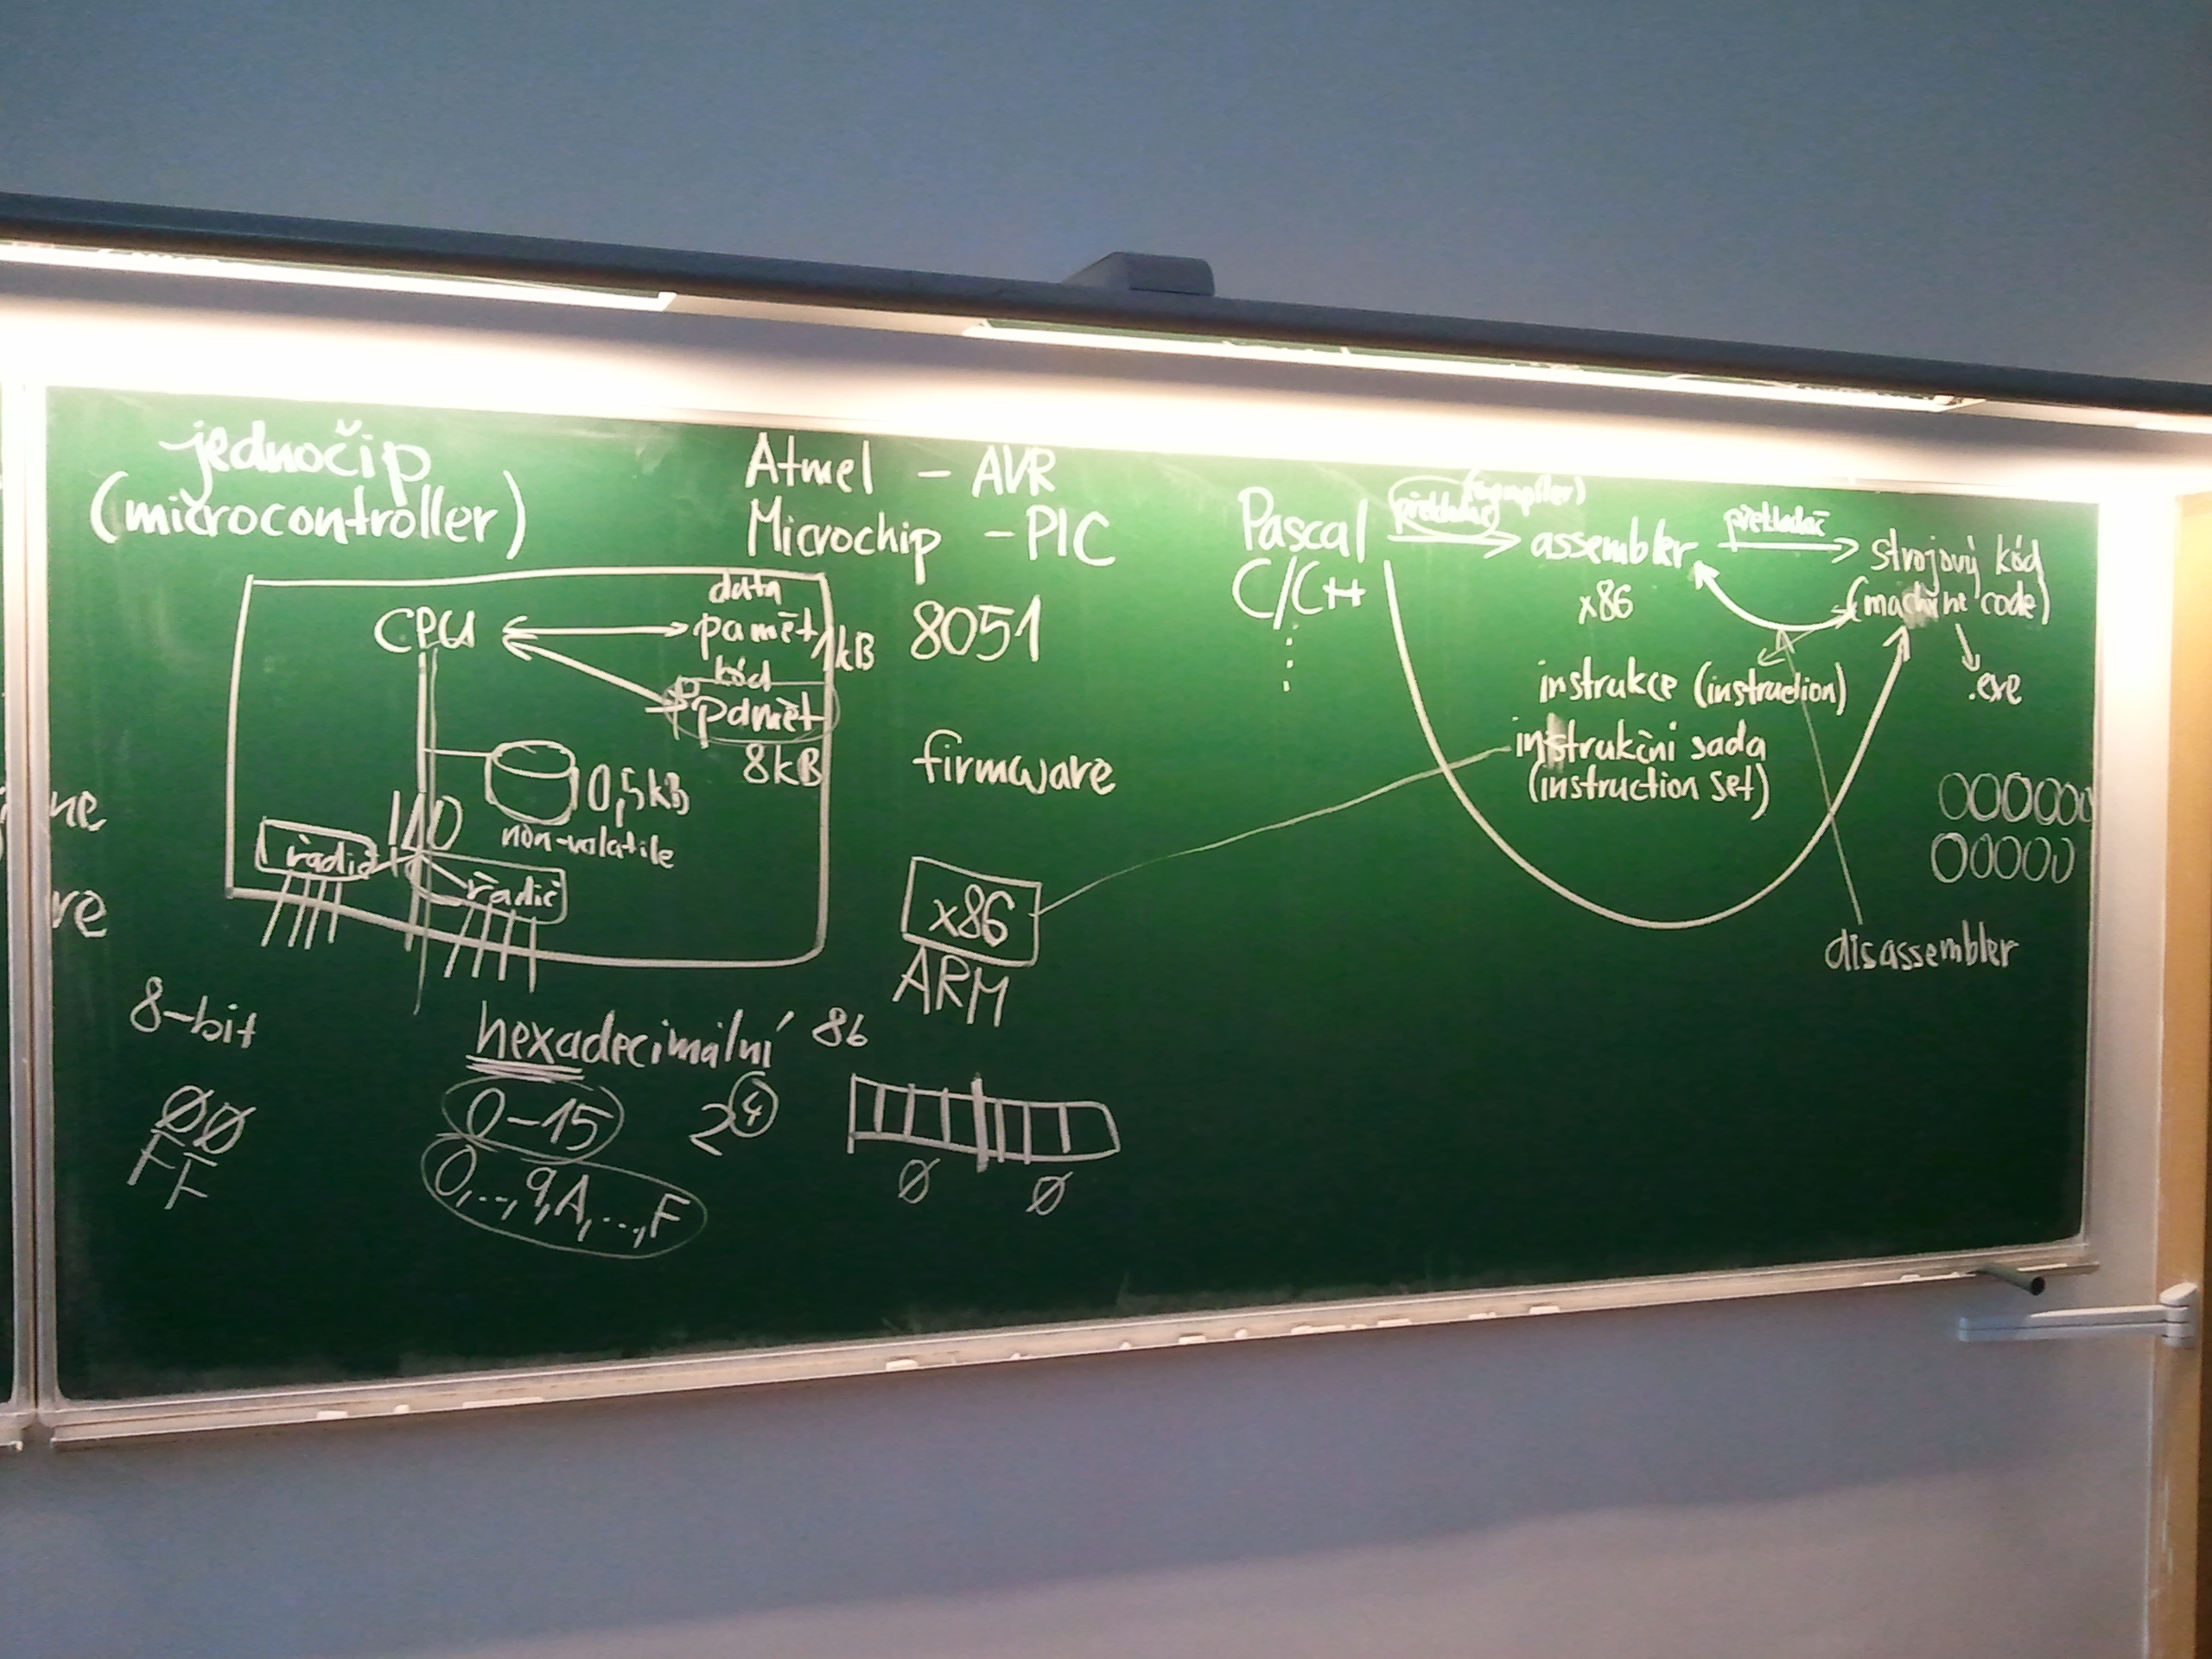 jednočip
(microcontroller)
Atmel - AVR
Microchip - PIC
8051
CPU
data
paměť
1kB
kód
paměť
8kB
0,5kB
non-volatile
I/O
řadič
řadič
firmware
x86
ARM
ne
re
8-bit
ØØ
FF
hexadecimální
0-15
0,..,9,A,...,F
2⁴
8b
Ø Ø
Pascal
C/C++
překladač (compiler)
assembler
x86
překladač
strojový kód
(machine code)
.exe
instrukce (instruction)
instrukční sada
(instruction set)
disassembler